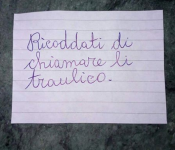 Ricoddati di
chiamare li
traulico.